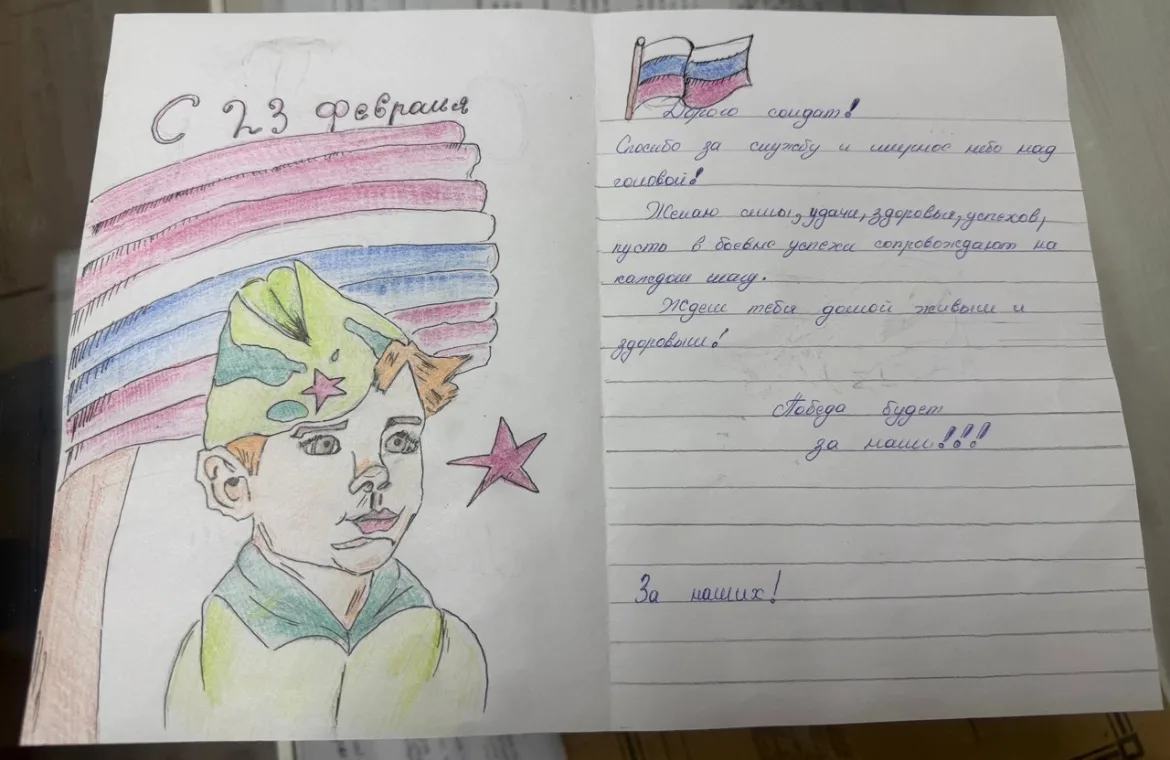 С 23 февраля
Дорого солдат!
Спосибо за службу и мирное небо над
головой!
Желаю силы, удачи, здоровья, успехов,
пусть в боевые успехи сопровождают на
каждом шагу.
Ждем тебя домой живым и
здоровым!
Победа будет
за нами!!!
За наших!